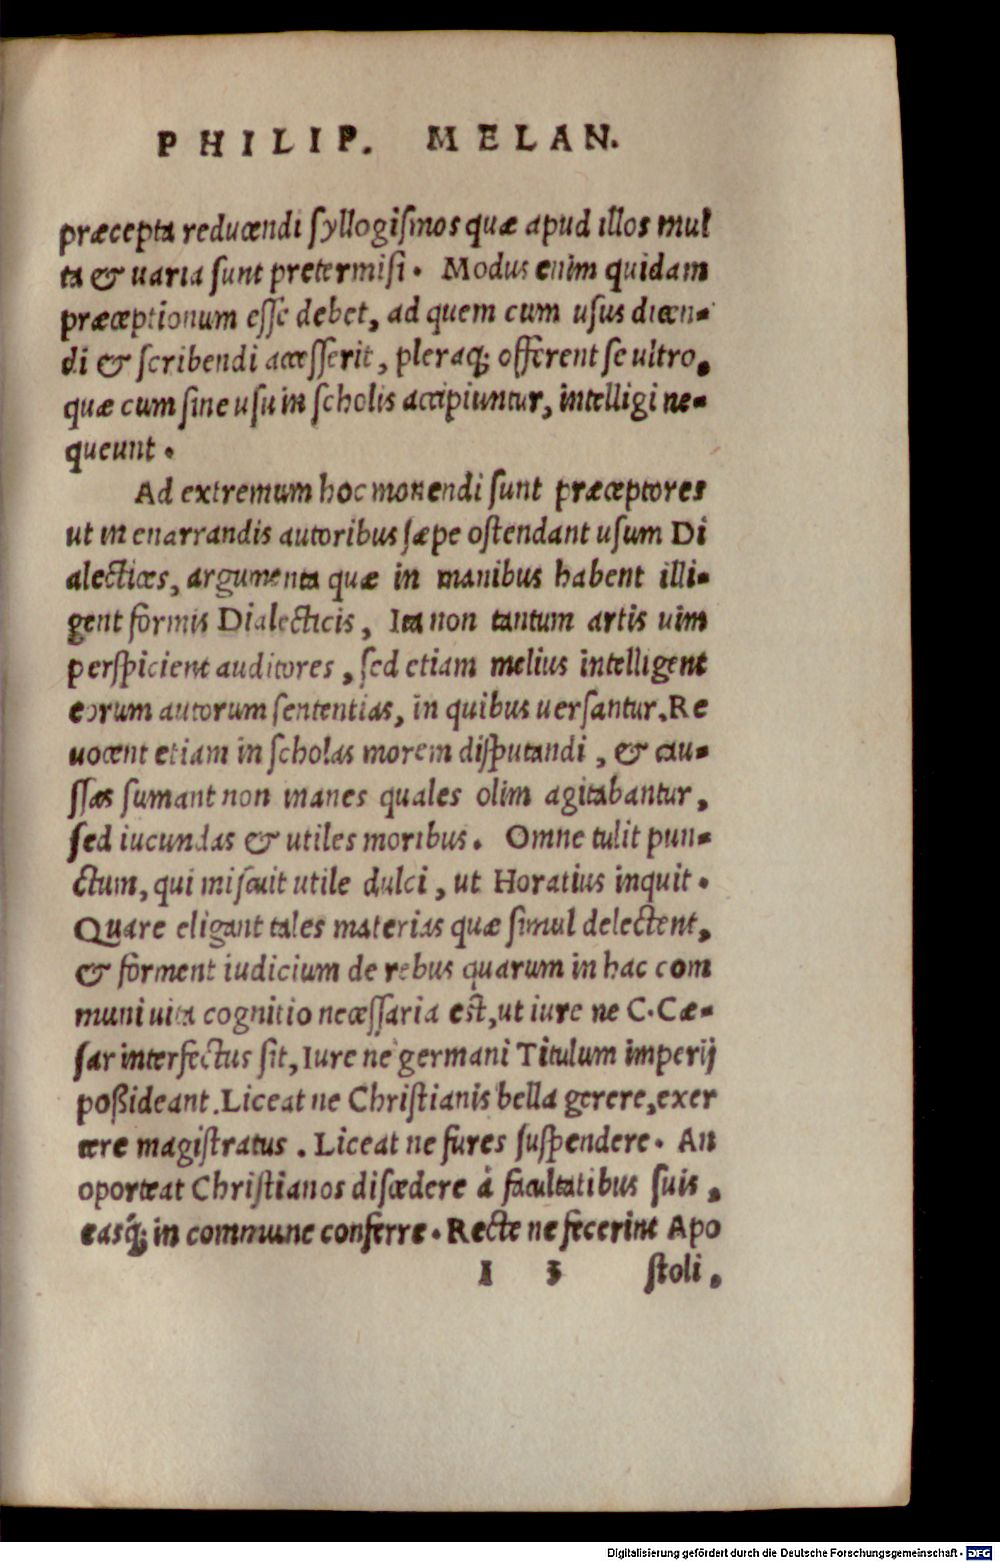 PHILIP. MELAN.
præcepta reducendi ſyllogiſmos quæ apud illos mul
ta & uaria ſunt pretermiſi. Modus enim quidam
præceptionum eſſe debet, ad quem cum uſus dicen-
di & ſcribendi acceſſerit, pleraq; offerent ſe ultro,
quæ cum ſine uſu in ſcholis accipiuntur, intelligi ne-
queunt.
Ad extremum hoc monendi ſunt præceptores
ut in enarrandis autoribus ſæpe oſtendant uſum Di
alectices, argumenta quæ in manibus habent illi-
gent formis Dialecticis, Ita non tantum artis uim
perſpicient auditores, ſed etiam melius intelligent
eorum autorum ſententias, in quibus uerſantur. Re
uocent etiam in ſcholas morem diſputandi, & cau-
ſſas ſumant non inanes quales olim agitabantur,
ſed iucundas & utiles moribus. Omne tulit pun-
ctum, qui miſcuit utile dulci, ut Horatius inquit.
Quare eligant tales materias quæ ſimul delectent,
& forment iudicium de rebus quarum in hac com
muni uita cognitio neceſſaria est, ut iure ne C. Cæ-
ſar interfectus ſit, Iure ne germani Titulum imperij
poßideant. Liceat ne Chriſtianis bella gerere, exer
cere magiſtratus. Liceat ne fures ſuſpendere. An
oporteat Chriſtianos diſcedere á facultatibus ſuis,
easq́; in commune conferre. Recte ne fecerint Apo
I 3 ſtoli,
Digitalisierung gefördert durch die Deutsche Forschungsgemeinschaft - DFG